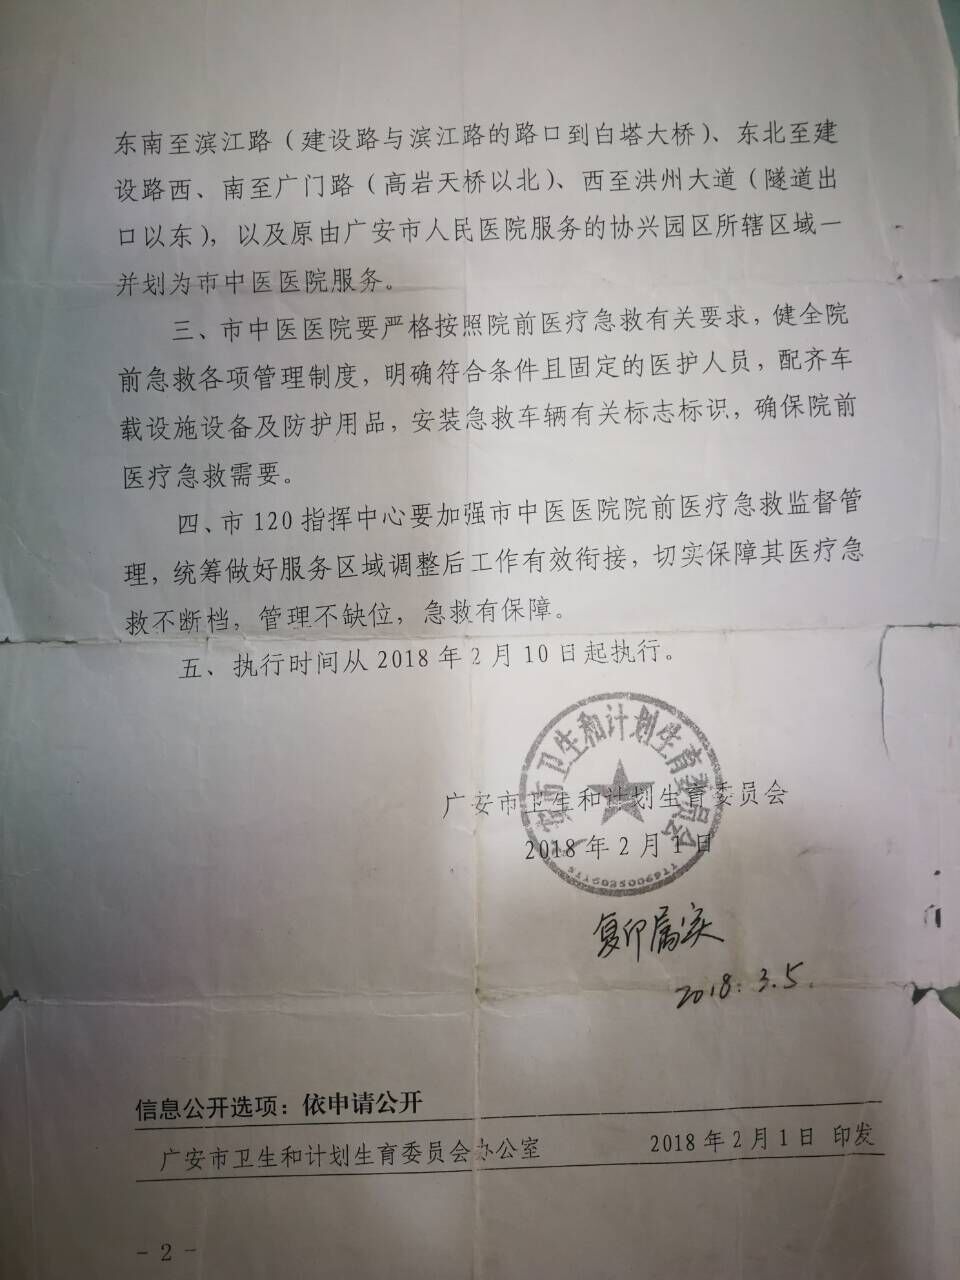 东南至滨江路（建设路与滨江路的路口到白塔大桥）、东北至建
设路西、南至广门路（高岩天桥以北）、西至洪州大道（隧道出
口以东），以及原由广安市人民医院服务的协兴园区所辖区域一
并划为市中医医院服务。
三、市中医医院要严格按照院前医疗急救有关要求，健全院
前急救各项管理制度，明确符合条件且固定的医护人员，配齐车
载设施设备及防护用品，安装急救车辆有关标志标识，确保院前
医疗急救需要。
四、市 120 指挥中心要加强市中医医院院前医疗急救监督管
理，统筹做好服务区域调整后工作有效衔接，切实保障其医疗急
救不断档，管理不缺位，急救有保障。
五、执行时间从 2018 年 2 月 10 日起执行。
安市卫生和计划生育委员会
广安市卫生和计划生育委员会
2018 年 2 月 1 日
复印属实
2018.3.5.
信息公开选项：依申请公开
广安市卫生和计划生育委员会办公室 2018 年 2 月 1 日 印发
- 2 -